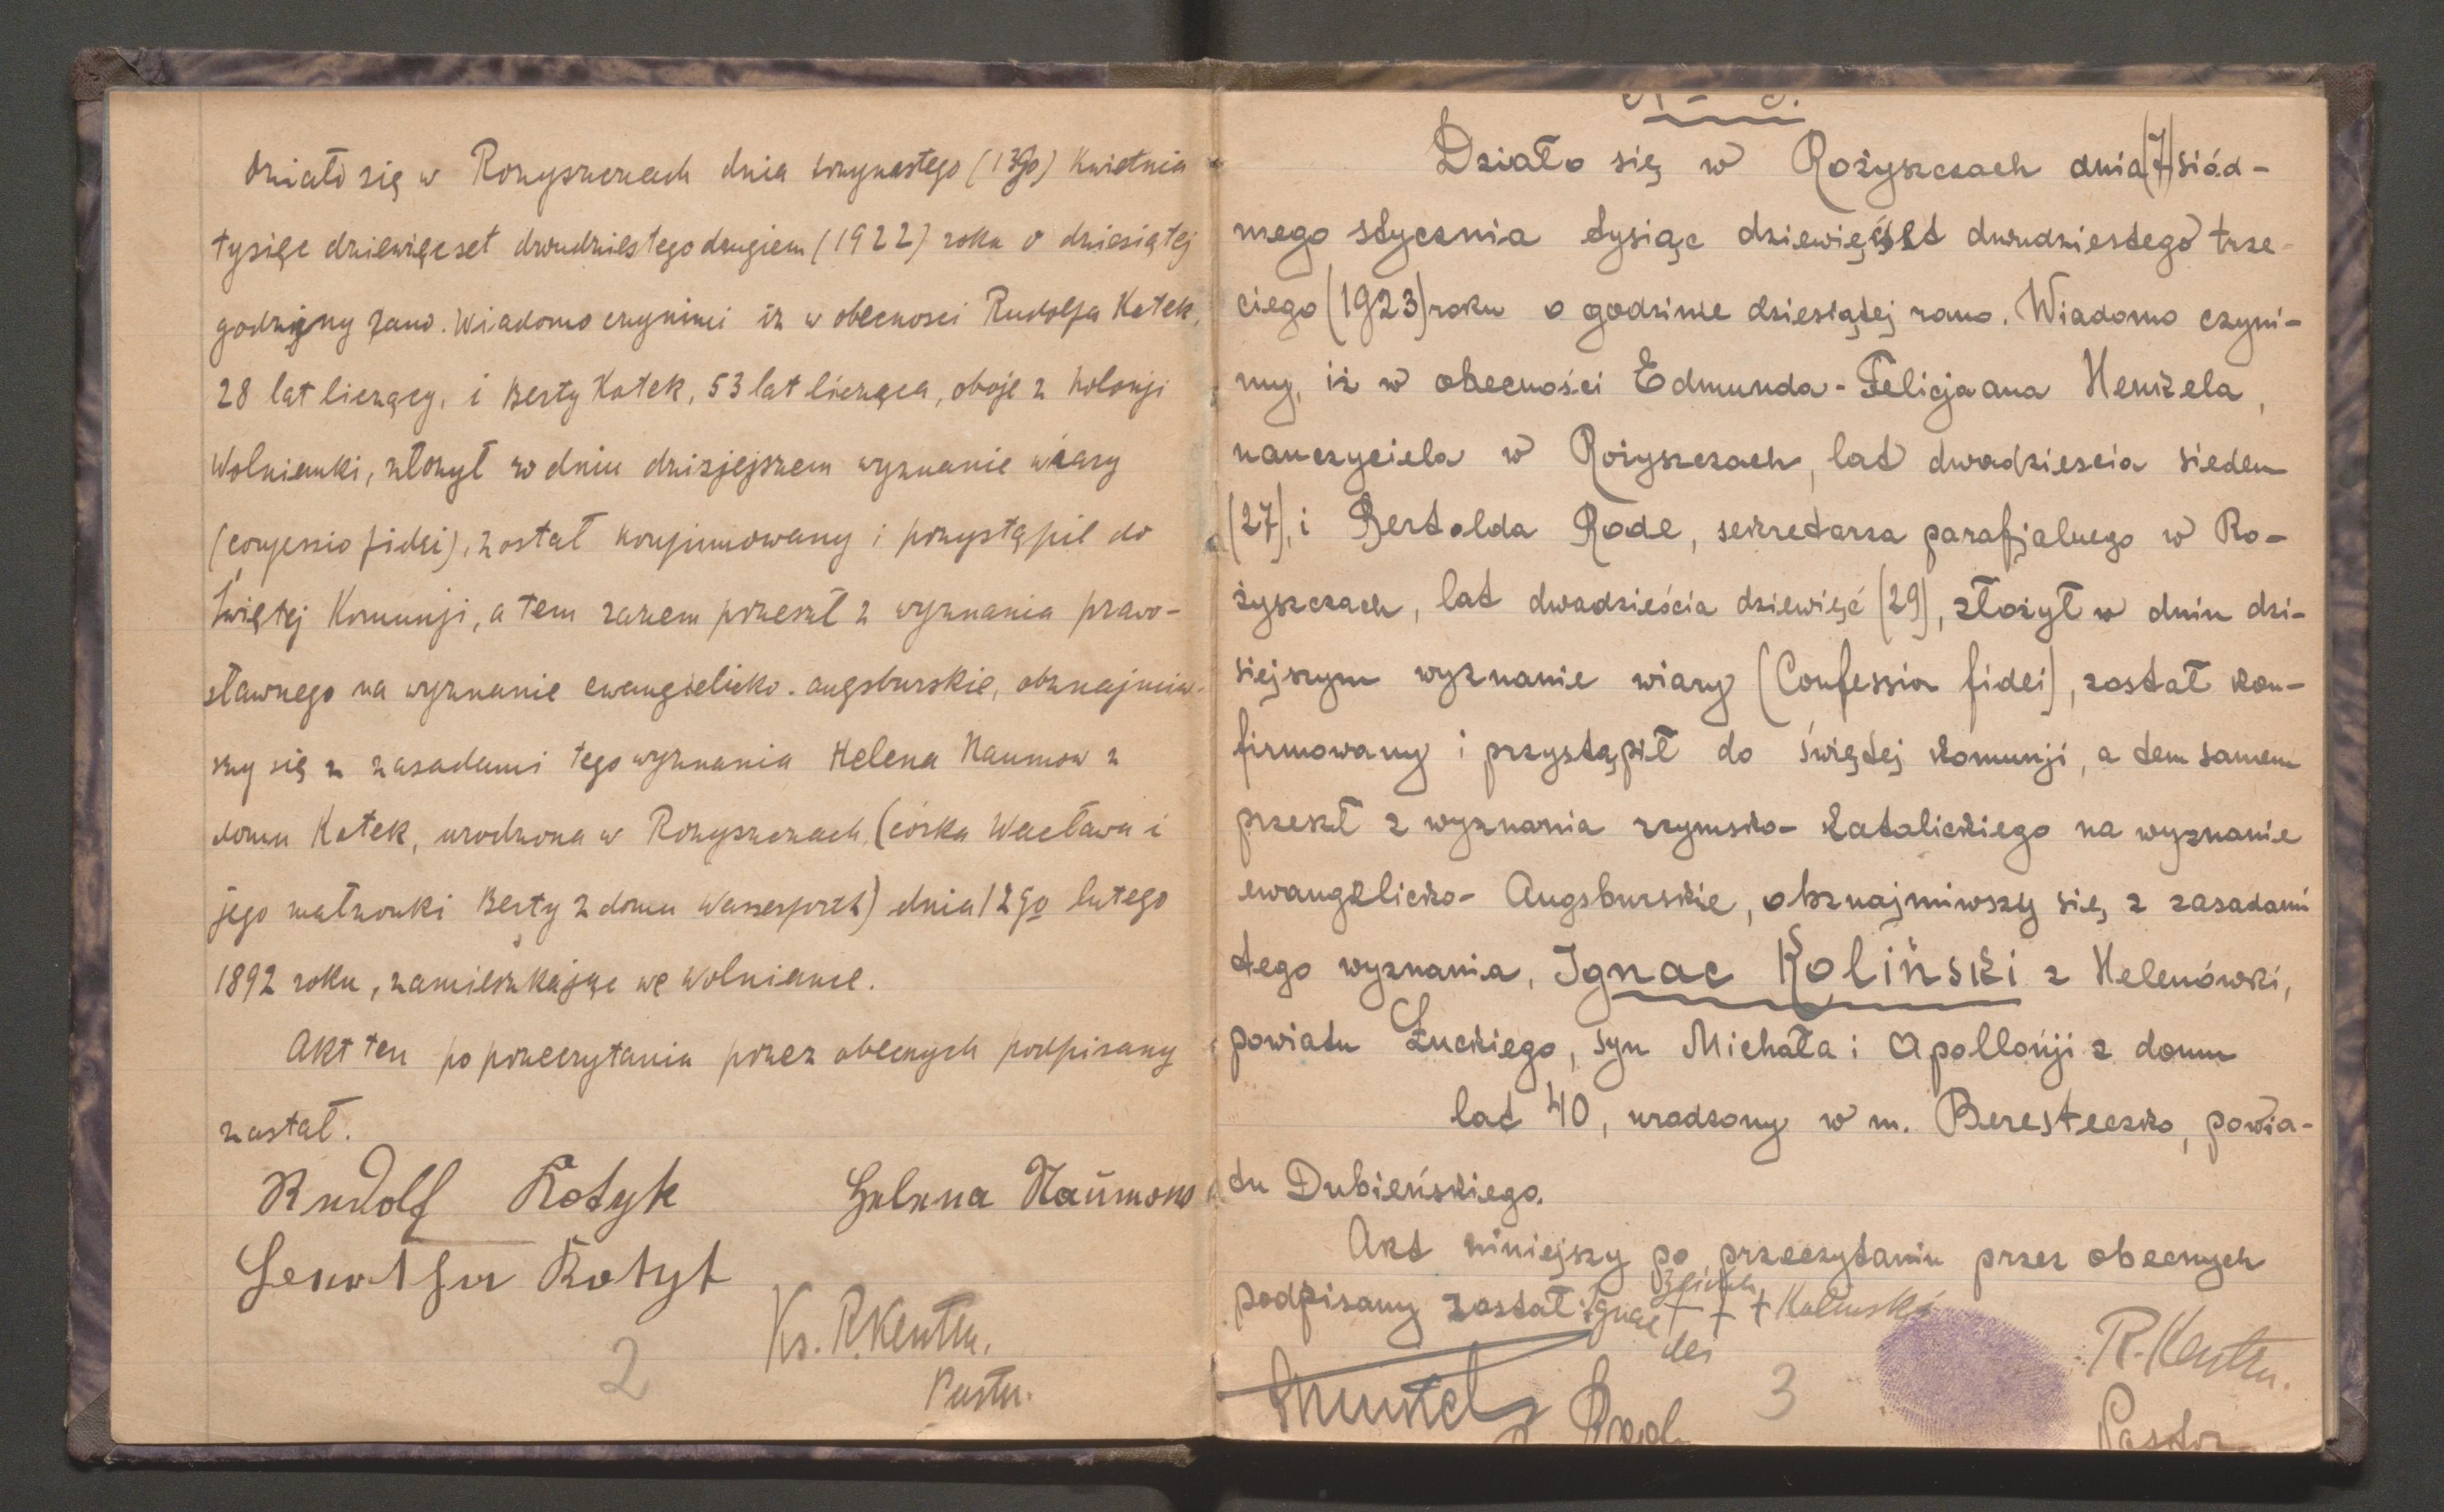 Działo się w Rozyszczach dnia trzynastego (13go) Kwietnia
tysięc dziewięcset dwudziestego drugiem (1922) roku o dziesiątej
godziny rano. Wiadomo czynimi iz w obecnosci Rudolfa Kotek,
28 lat liczący, i Berty Kotek, 53 lat licząca, oboje z kolonji
Wolnianki, złozył w dniu dzisjejszem wyznanie wiary
(confessio fidei), został konfirmowany i przystąpil do
Świętej Komunji, a tem razem przeszł z wyznania prawo-
sławnego na wyznanie ewangielicko. augsburskie, obznajmiw-
szy się z zasadami tego wyznania Helena Naumow z
domu Kotek, urodzona w Rozyszczach, (córka Wacława i
jego małzonki Berty z domu) dnia 12go lutego
1892 roku, zamieszkając we Wolniance.
Akt ten po przeczytaniu przez obecnych podpisany
został.
Rudolf Kotyk Helena Naumow
Kotyk
Ks. R. Kersten.
Pastor.
2
Działo się w Rożyszczach dnia (7) siód-
mego stycznia tysiąc dziewięćset dwudziestego trze-
ciego (1923) roku o godzinie dziesiątej rano. Wiadomo czyni-
my, iż w obecności Edmunda-Felicjaana Henkela,
nauczyciela w Rożyszczach, lat dwadziescia siedem
(27), i Bertolda Rode, sekretarza parafjalnego w Ro-
żyszczach, lat dwadzieścia dziewięć (29), złożył w dniu dzi-
siejszym wyznanie wiary (Confessio fidei), został kon-
firmowany i przystąpił do świętej komunji, a tem samem
przeszł z wyznania rzymsko-katolickiego na wyznanie
ewangelicko-Augsburskie, obznajmiwszy się z zasadami
tego wyznania, Ignac Koliński z Helenówki,
powiatu Łuckiego, syn Michała i Apollonji z domu
lat 40, urodzony w m. Beresteczko, powia-
tu Dubieńskiego.
Akt niniejszy po przeczytaniu przez obecnych
podpisany został: Ignac + + + Kolinski
R. Kersten.
3
Pastor